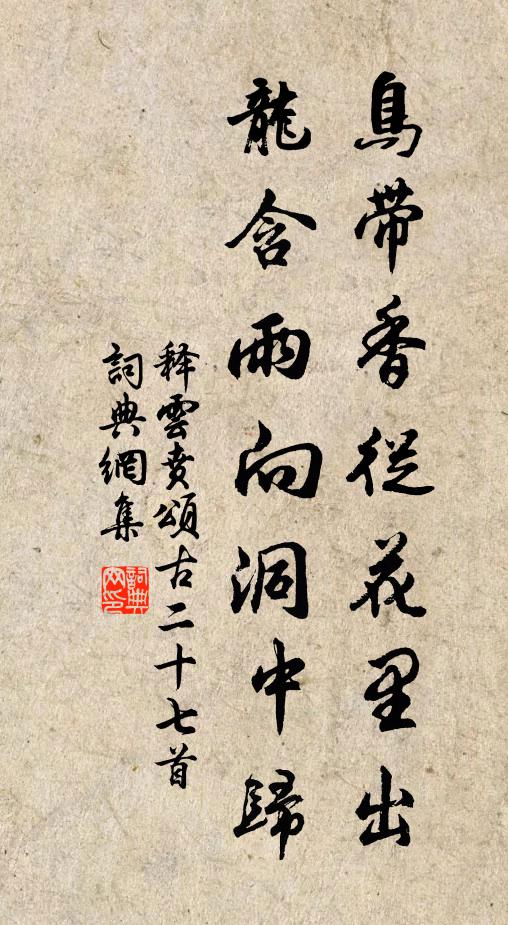 鳥帶香從花里出
龍含雨向洞中歸
释雲賁頌古二十七首
詞典網集
詞典網印